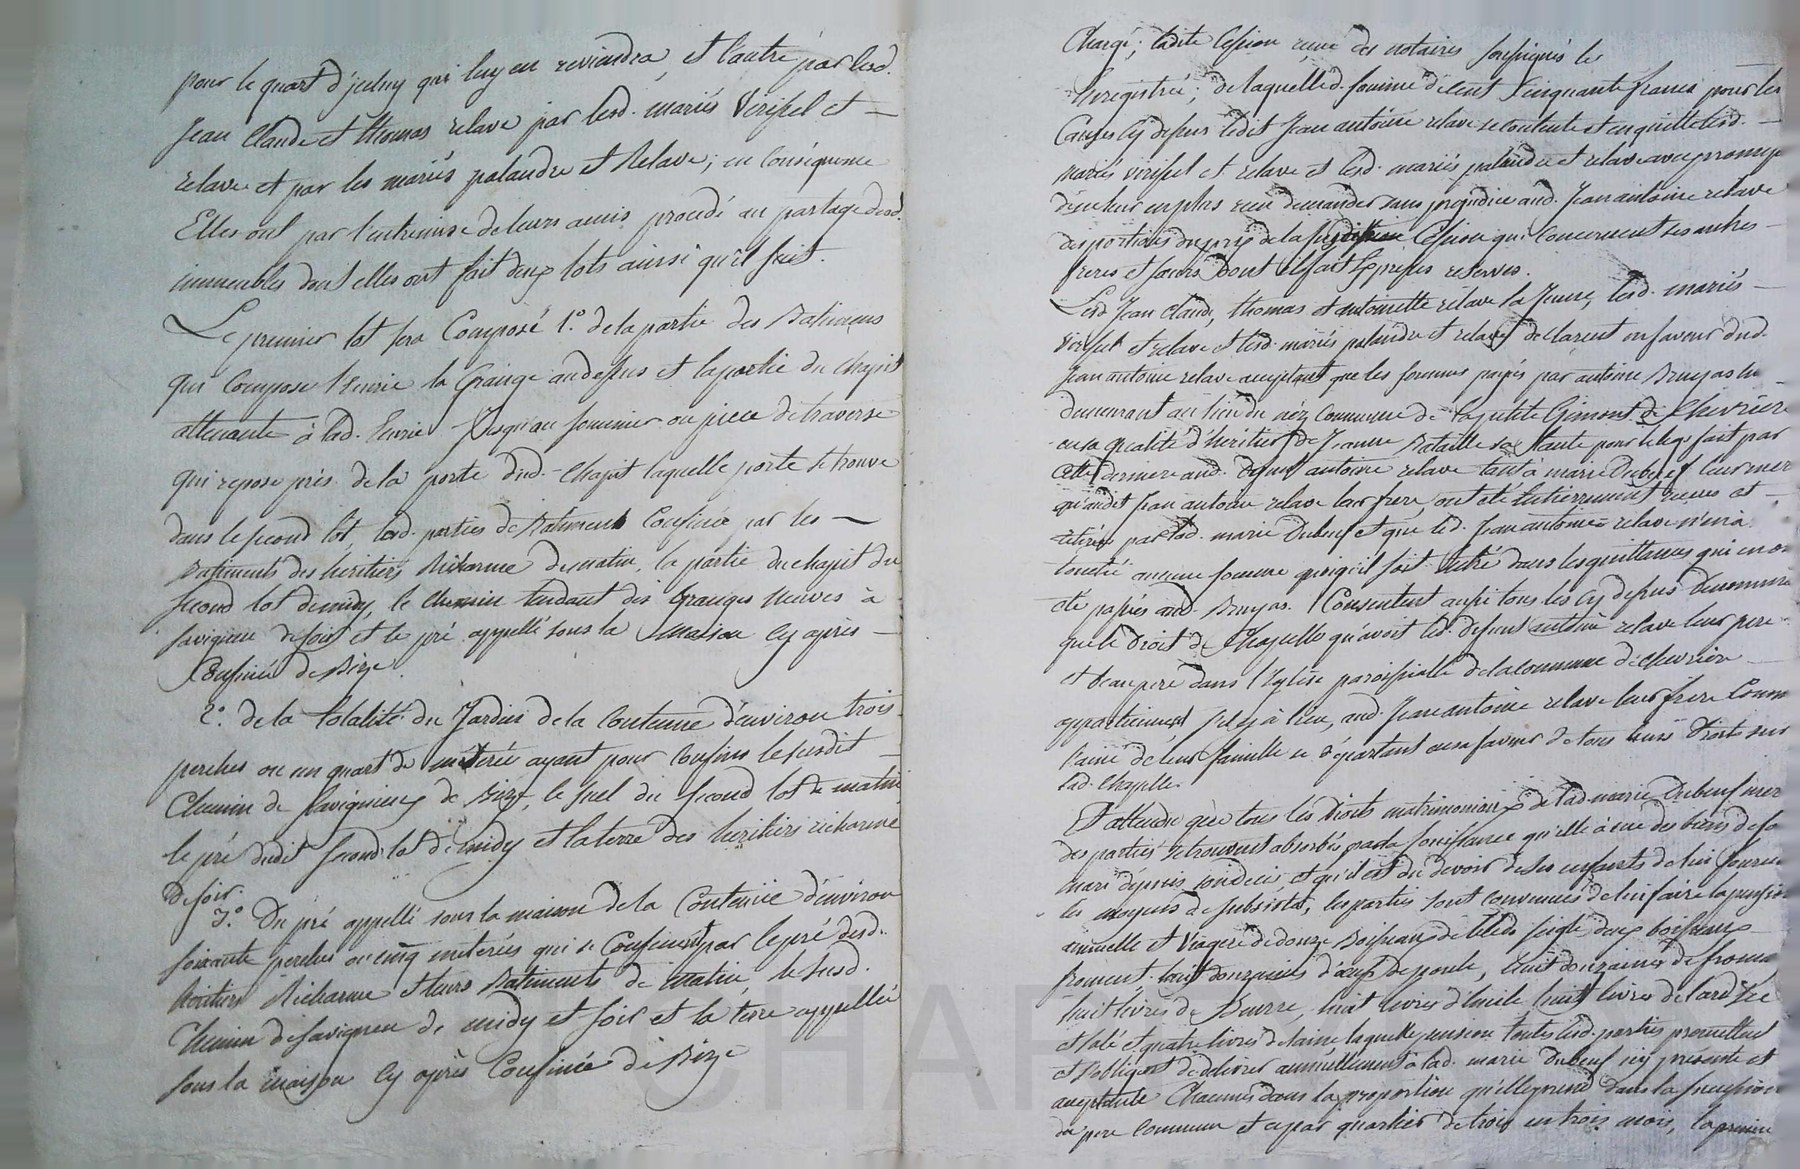 pour le quart d'jceluy qui luy en reviendra, et l'autre par lesd.
Jean Claude et thomas relave par lesd. mariés Verissel et —
relave et par les mariés palandre et Relave ; en Conséquence
Elles ont par l'entremise de leurs amis procédé au partage desd.
immeubles dont elles ont fait deux lots ainsi qu'il suit.
Le premier lot sera Composé 1.° de la partie des Batimens
qui Compose l'Ecurie la Grange audessus et la partie du chapit
attenante à lad. Ecurie Jusqu'au sommier ou piece de traverse
qui repose près de la porte dud. Chapit laquelle porte se trouve
dans le second lot, lesd. parties de Batiment Confinée par les —
Batiments des héritiers Richarme de matin, la partie du chapit du
second lot de midy, le chemin tendant des Granges Neuves à
savigneu de soir et le pré appellé sous la Maison Cy après —
Confiné de Bize.
2.° de la totalité du Jardin de la Contenue d'environ trois
perches ou un quart de miterée ayant pour Confins le susdit —
Chemin de Savigneux de Bize, le suel du second lot de matin
le pré dudit second lot de midy et la terre des héritiers richarme
de soir.
3.° Du pré appellé sous la maison de la Contenue d'environ
soixante perches ou cinq miterées qui se Confinent par le pré desd.
héritiers Richarme et leurs Batiments de matin, le susd.
Chemin de savigneu de midy et soir et la terre appellée
sous la maison Cy après Confinée de Bize
Chargé ; ladite Cession reçue des notaires soussignés le
Enregistrée ; de laquelle d. somme de Cent Cinquante francs pour les
Causes Cy dessus ledit Jean antoine relave se contente et en quitte lesd. —
mariés verissel et relave et lesd. mariés palandre et relave avec promesse
de ne leur en plus rien demander sans préjudice aud. Jean antoine relave
des portions du prix de la susditte Cession qui Concernent ses autres —
freres et sœurs dont il fait Expresses reserves.
Lesd. Jean Claude, thomas et antoinette relave la Jeune, lesd. mariés —
Verissel et relave et lesd. mariés palandre et relave déclarent en faveur dud.
Jean antoine relave acceptant que les sommes payées par antoine Bruyas
demeurant au lieu du néz Commune de la petite Gimont de Chevriere
en sa qualité d'héritier de Jeanne Bataille sa tante pour le legs fait par
Cette derniere aud. defunt antoine relave tant a marie Dubeuf leur mere
qu'audit Jean antoine relave leur frere, ont été Entierement reçues et —
retirées par lad. marie Dubeuf et que led. Jean antoine relave n'en a
touché aucune somme quoiqu'il soit entré dans les quittances qui en ont
été passées aud. Bruyas. Consentent aussi tous les Cy dessus denommés
que le Droit de Chapelle qu'avoit led. defunt antoine relave leur pere
et beau pere dans l'Eglise paroissialle de la commune de Chevriere —
appartiennent s'il y à lieu, aud. Jean antoine relave leur frere Comme
l'ainé de leur famille se départant en sa faveur de tous leurs Droits sur
lad. Chapelle.
Et attendu que tous les Droits matrimoniaux de lad. marie Dubeuf mere
des parties se trouvent absorbés par la Jouissance qu'elle a eue des biens de son
mari depuis son decès, et qu'il est du devoir de ses enfants de lui fournir
les moyens de subsister, les parties sont convenues de lui faire la pension
annuelle et Viagere de douze Boisseaux de bled seigle deux boisseaux
froment huit douzaines d'œufs de poule, huit douzaines de fromages
huit livres de Beurre, huit livres d'huile huit livres de lard
et salé et quatre livres de laine laquelle pension toutes lesd. parties promettent
et s'obligent de délivrer annuellement à lad. marie Dubeuf icy présente et
acceptante Chacunes dans la proportion qu'elle prend Dans la succession
du pere Commun et ce par quartier de trois en trois mois, le premier